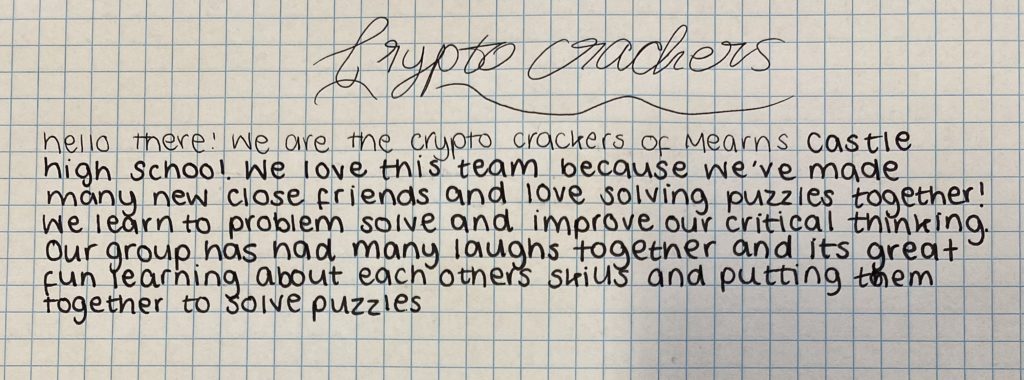 Crypto crackers
hello there! We are the crypto crackers of Mearns Castle
high school. We love this team because we've made
many new close friends and love solving puzzles together!
We learn to problem solve and improve our critical thinking.
Our group has had many laughs together and its great
fun learning about each others skills and putting them
together to solve puzzles